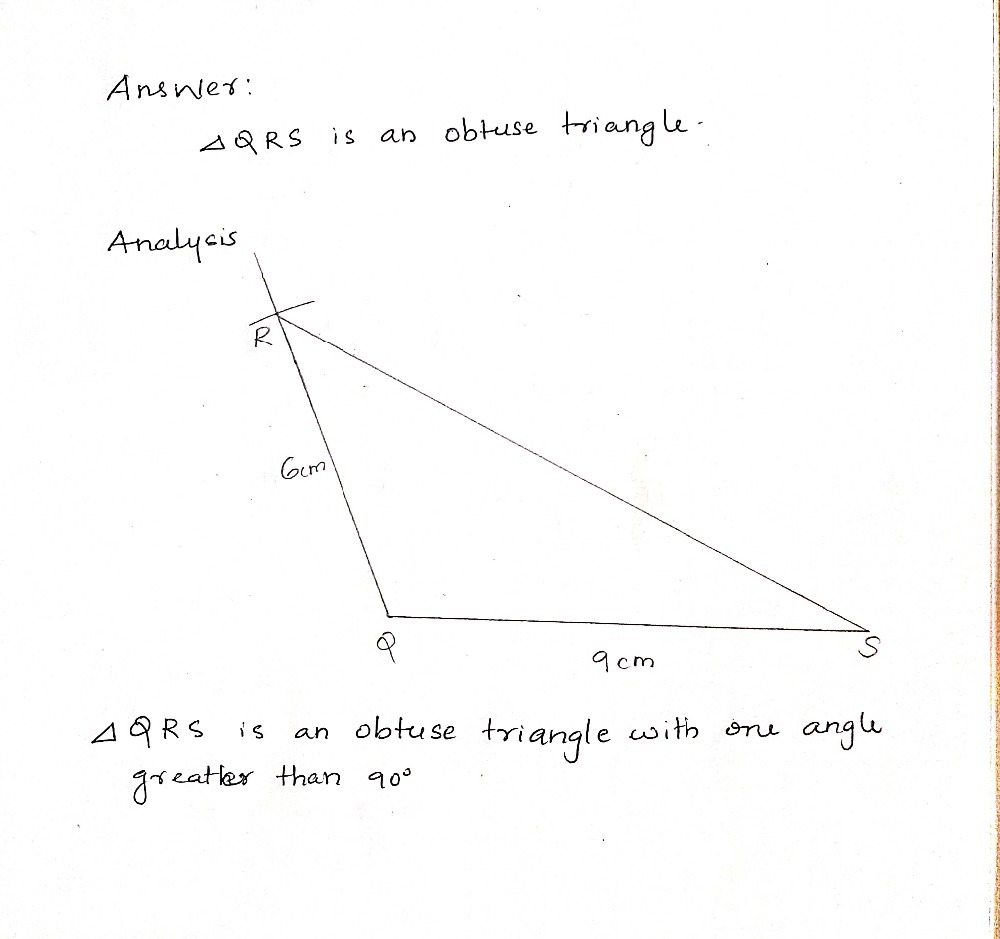 Answer:
△QRS is an obtuse triangle.
Analysis
R
6cm
Q
S
9cm
△QRS is an obtuse triangle with one angle
greatter than 90°